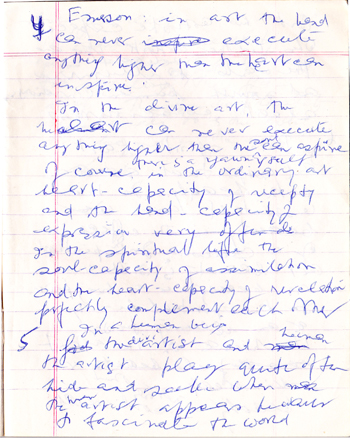 4 Emerson: in art the hand
can never execute
anything higher than the heart can
inspire.
In the divine art, the
heart can never execute
anything higher than the can aspire
Of course, in the ordinary art
there is a yawning gulf
heart-capacity of
and the hand-capacity of
expression very often do
In the spiritual life the
soul-capacity of assimilation
and the heart-capacity of revelation
perfectly complement each other
In a human being
5 the divine artist and human
the artist play quite often
hide and seek when
the artist appears
to fascinate the world